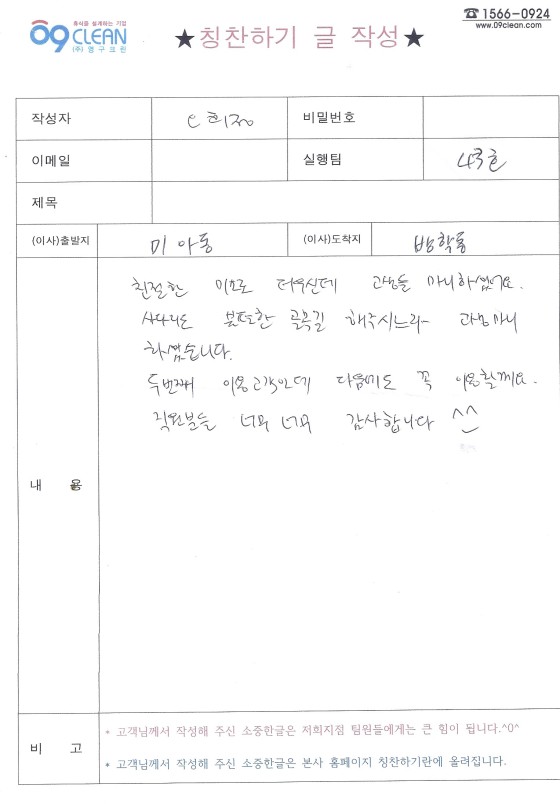 휴식을 설계하는 기업
09 CLEAN
(주)영구크린
☎ 1566-0924
www.09clean.com
★칭찬하기 글 작성★
작성자
비밀번호
이메일
실행팀 43호
제목
(이사)출발지 미아동 (이사)도착지 방학동
내 용
친절한 미소로 더우신데 고생들 마니하셨어요.
사다리도 불편한 골목길 해주시느라~ 고생마니
하셨습니다.
두번째 이용고객인데 다음에도 꼭 이용할께요.
직원분들 너무 너무 감사합니다 ^^
비 고
* 고객님께서 작성해 주신 소중한글은 저희지점 팀원들에게는 큰 힘이 됩니다.^0^
* 고객님께서 작성해 주신 소중한글은 본사 홈페이지 칭찬하기란에 올려집니다.